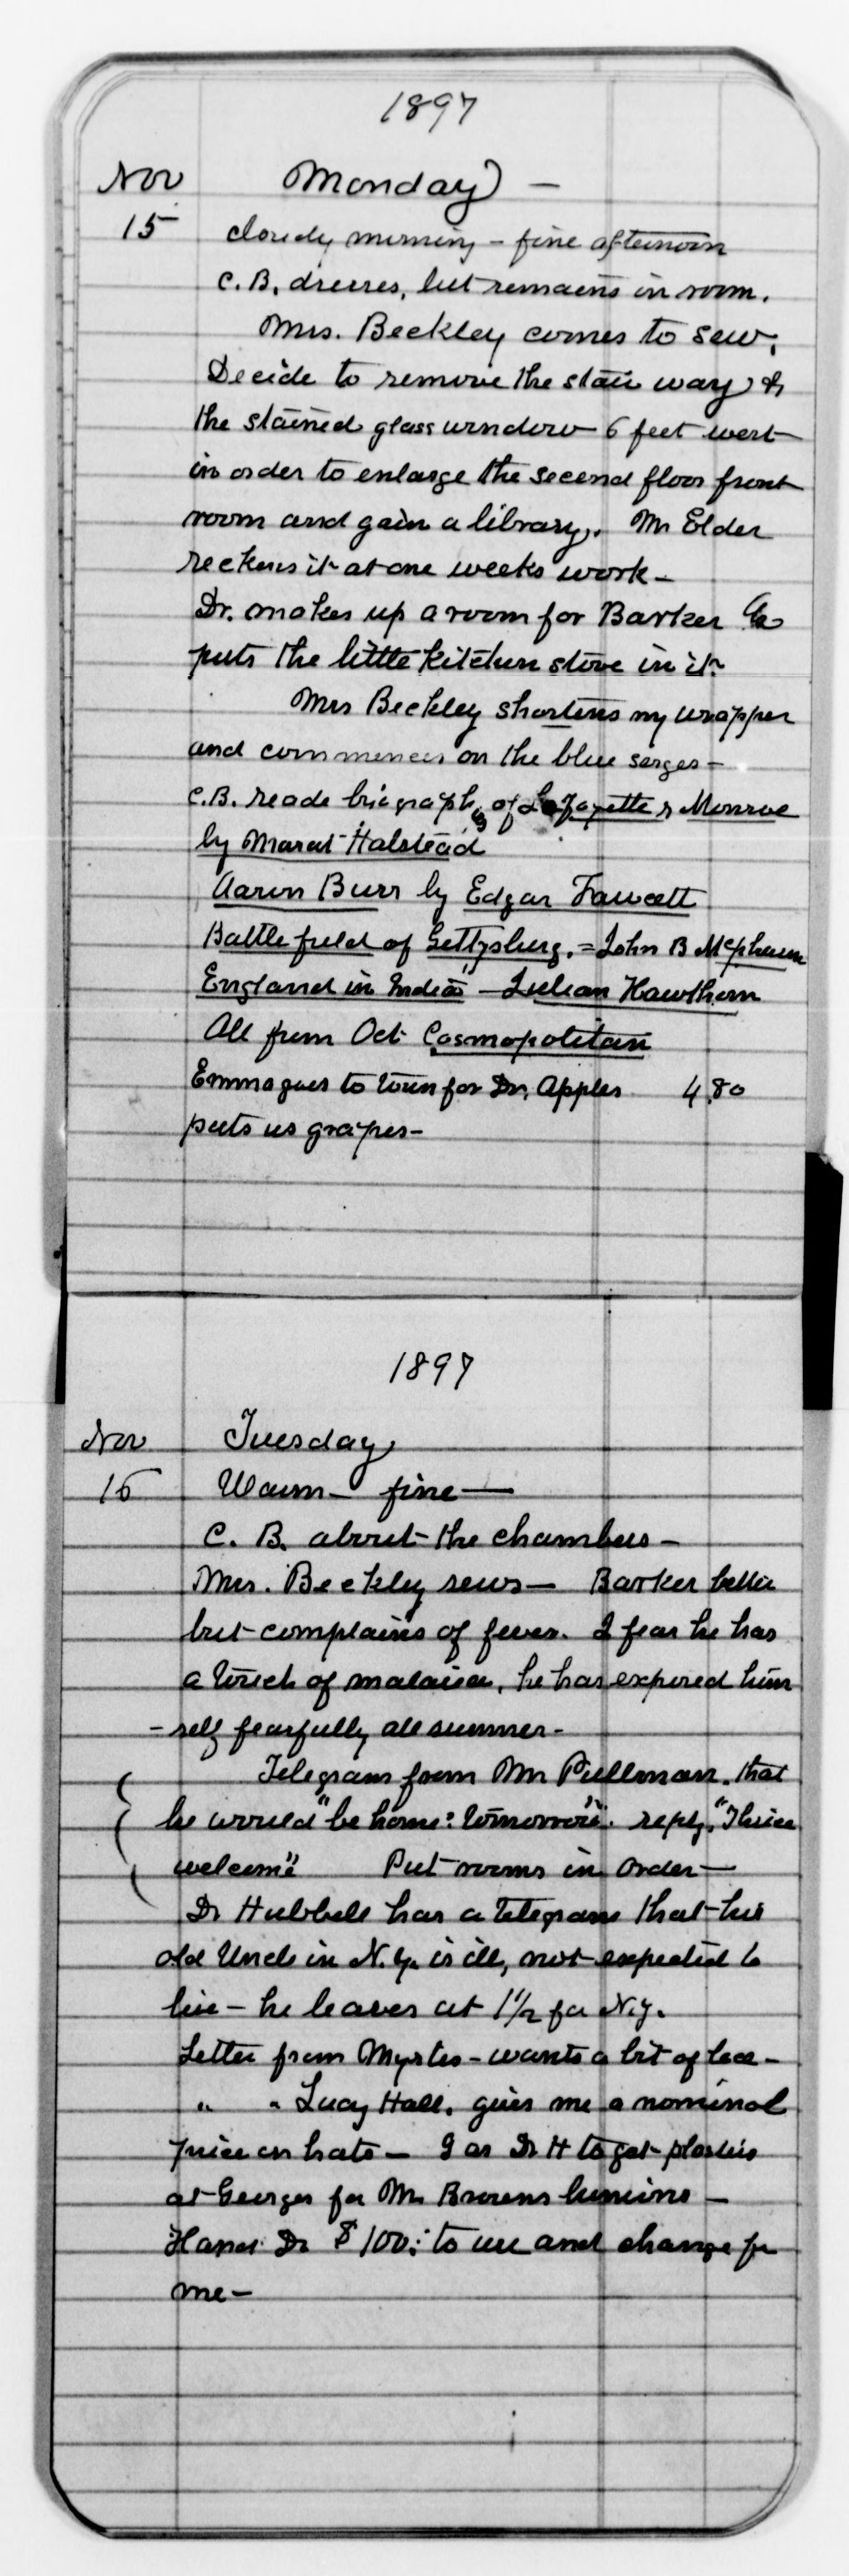 1897
Nov Monday -
15 cloudy morning - fine afternoon
C. B. dresses, but remains in room.
Mrs. Beckley comes to sew,
Decide to remove the stair way &
the stained glass window 6 feet west
in order to enlarge the second floor front
room and gain a library. Mr Elder
reckons it at one weeks work -
Dr. makes up a room for Barker &
puts the little kitchen stove in it.
Mrs Beckley shortens my wrapper
and commences on the blue serges -
C.B. reads biography of LaFayette & Monroe
by Marat Halstead
Aaron Burr by Edgar Fawcett
Battle field of Gettysburg. = John B
England in India" - Julian Hawthorn
All from Oct Cosmopolitan
Emma goes to town for Dr. Apples 4.80
puts us grapes -
1897
Nov Tuesday
16 Warm - fine -
C. B. about the chambers -
Mrs. Beckley sews - Barker better
but complains of fever. I fear he has
a touch of malaria, he has exposed him
- self fearfully all summer -
Telegram from Mr Pullman. that
he would "be home: tomorrow". reply, "Thrice
welcome" Put rooms in order -
Dr Hubbell has a telegram that his
old Uncle in N.Y. is ill, not expected to
live - he leaves at 1 1/2 for N.Y.
Letter from Myrtis - wants a bit of lace -
" " Lucy Hall. gives me a nominal
price on hats - Dr H to get
at Georges for Mr Browns
Hand Dr $100: to use and change for
me -